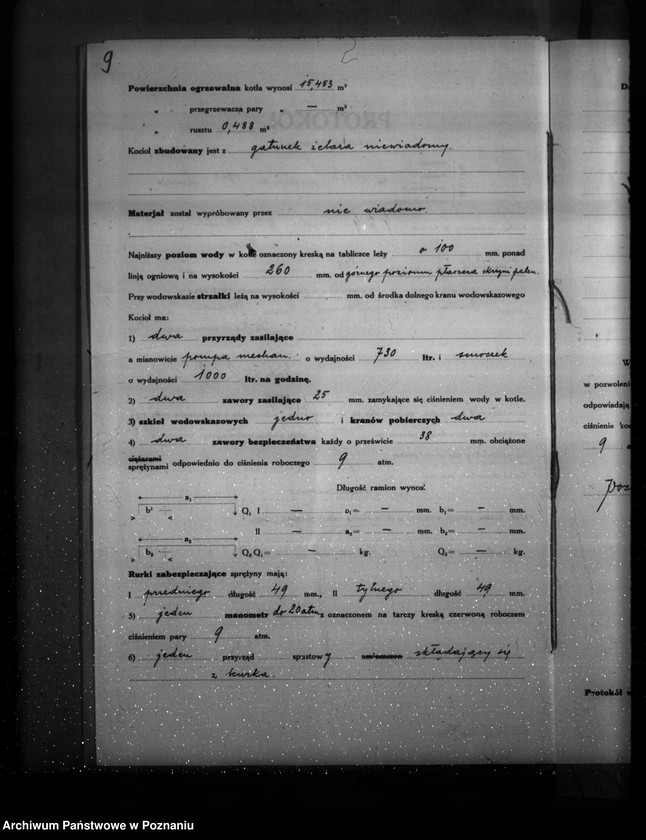 9
Powierzchnia ogrzewalna kotła wynosi 15,453 m²
„ przegrzewacza pary „ — m²
„ rusztu 0,488 m²
Kocioł zbudowany jest z gatunek żelaza niewiadomy.
Materjał został wypróbowany przez nie wiadomo
Najniższy poziom wody w kotle oznaczony kreską na tabliczce leży o 100 mm. ponad
linją ogniową i na wysokości 260 mm. od górnego poziomu płaszcza skrzyni palen.
Przy wodowskazie strzałki leżą na wysokości mm. od środka dolnego kranu wodowskazowego
Kocioł ma:
1) dwa przyrządy zasilające
a mianowicie pompa mechan. o wydajności 730 ltr. i smoczek
o wydajności 1000 ltr. na godzinę.
2) dwa zawory zasilające 25 mm. zamykające się ciśnieniem wody w kotle.
3) szkieł wodowskazowych jedno i kranów pobierczych dwa
4) dwa zawory bezpieczeństwa każdy o prześwicie 38 mm. obciążone
ciężarami
sprężynami odpowiednio do ciśnienia roboczego 9 atm.
Długość ramion wynosi:
a₁
b¹ — Q₁ I — a₁= — mm. b₁= — mm.
II — a₂= — mm. b₂= — mm.
a₂
b₂ — Q₂ Q₁= — kg. Q₂= — kg.
Rurki zabezpieczające sprężyny mają:
I przedniego długość 49 mm., II tylnego długość 49 mm.
5) jeden manometr do 20 atm z oznaczonem na tarczy kreską czerwoną roboczem
ciśnieniem pary 9 atm.
6) jeden przyrząd spustowy umieszczon składający się
z kurka.
D
W
w pozwoleni
odpowiadają
ciśnienie ko
9
Poz
Protokół w
Archiwum Państwowe w Poznaniu